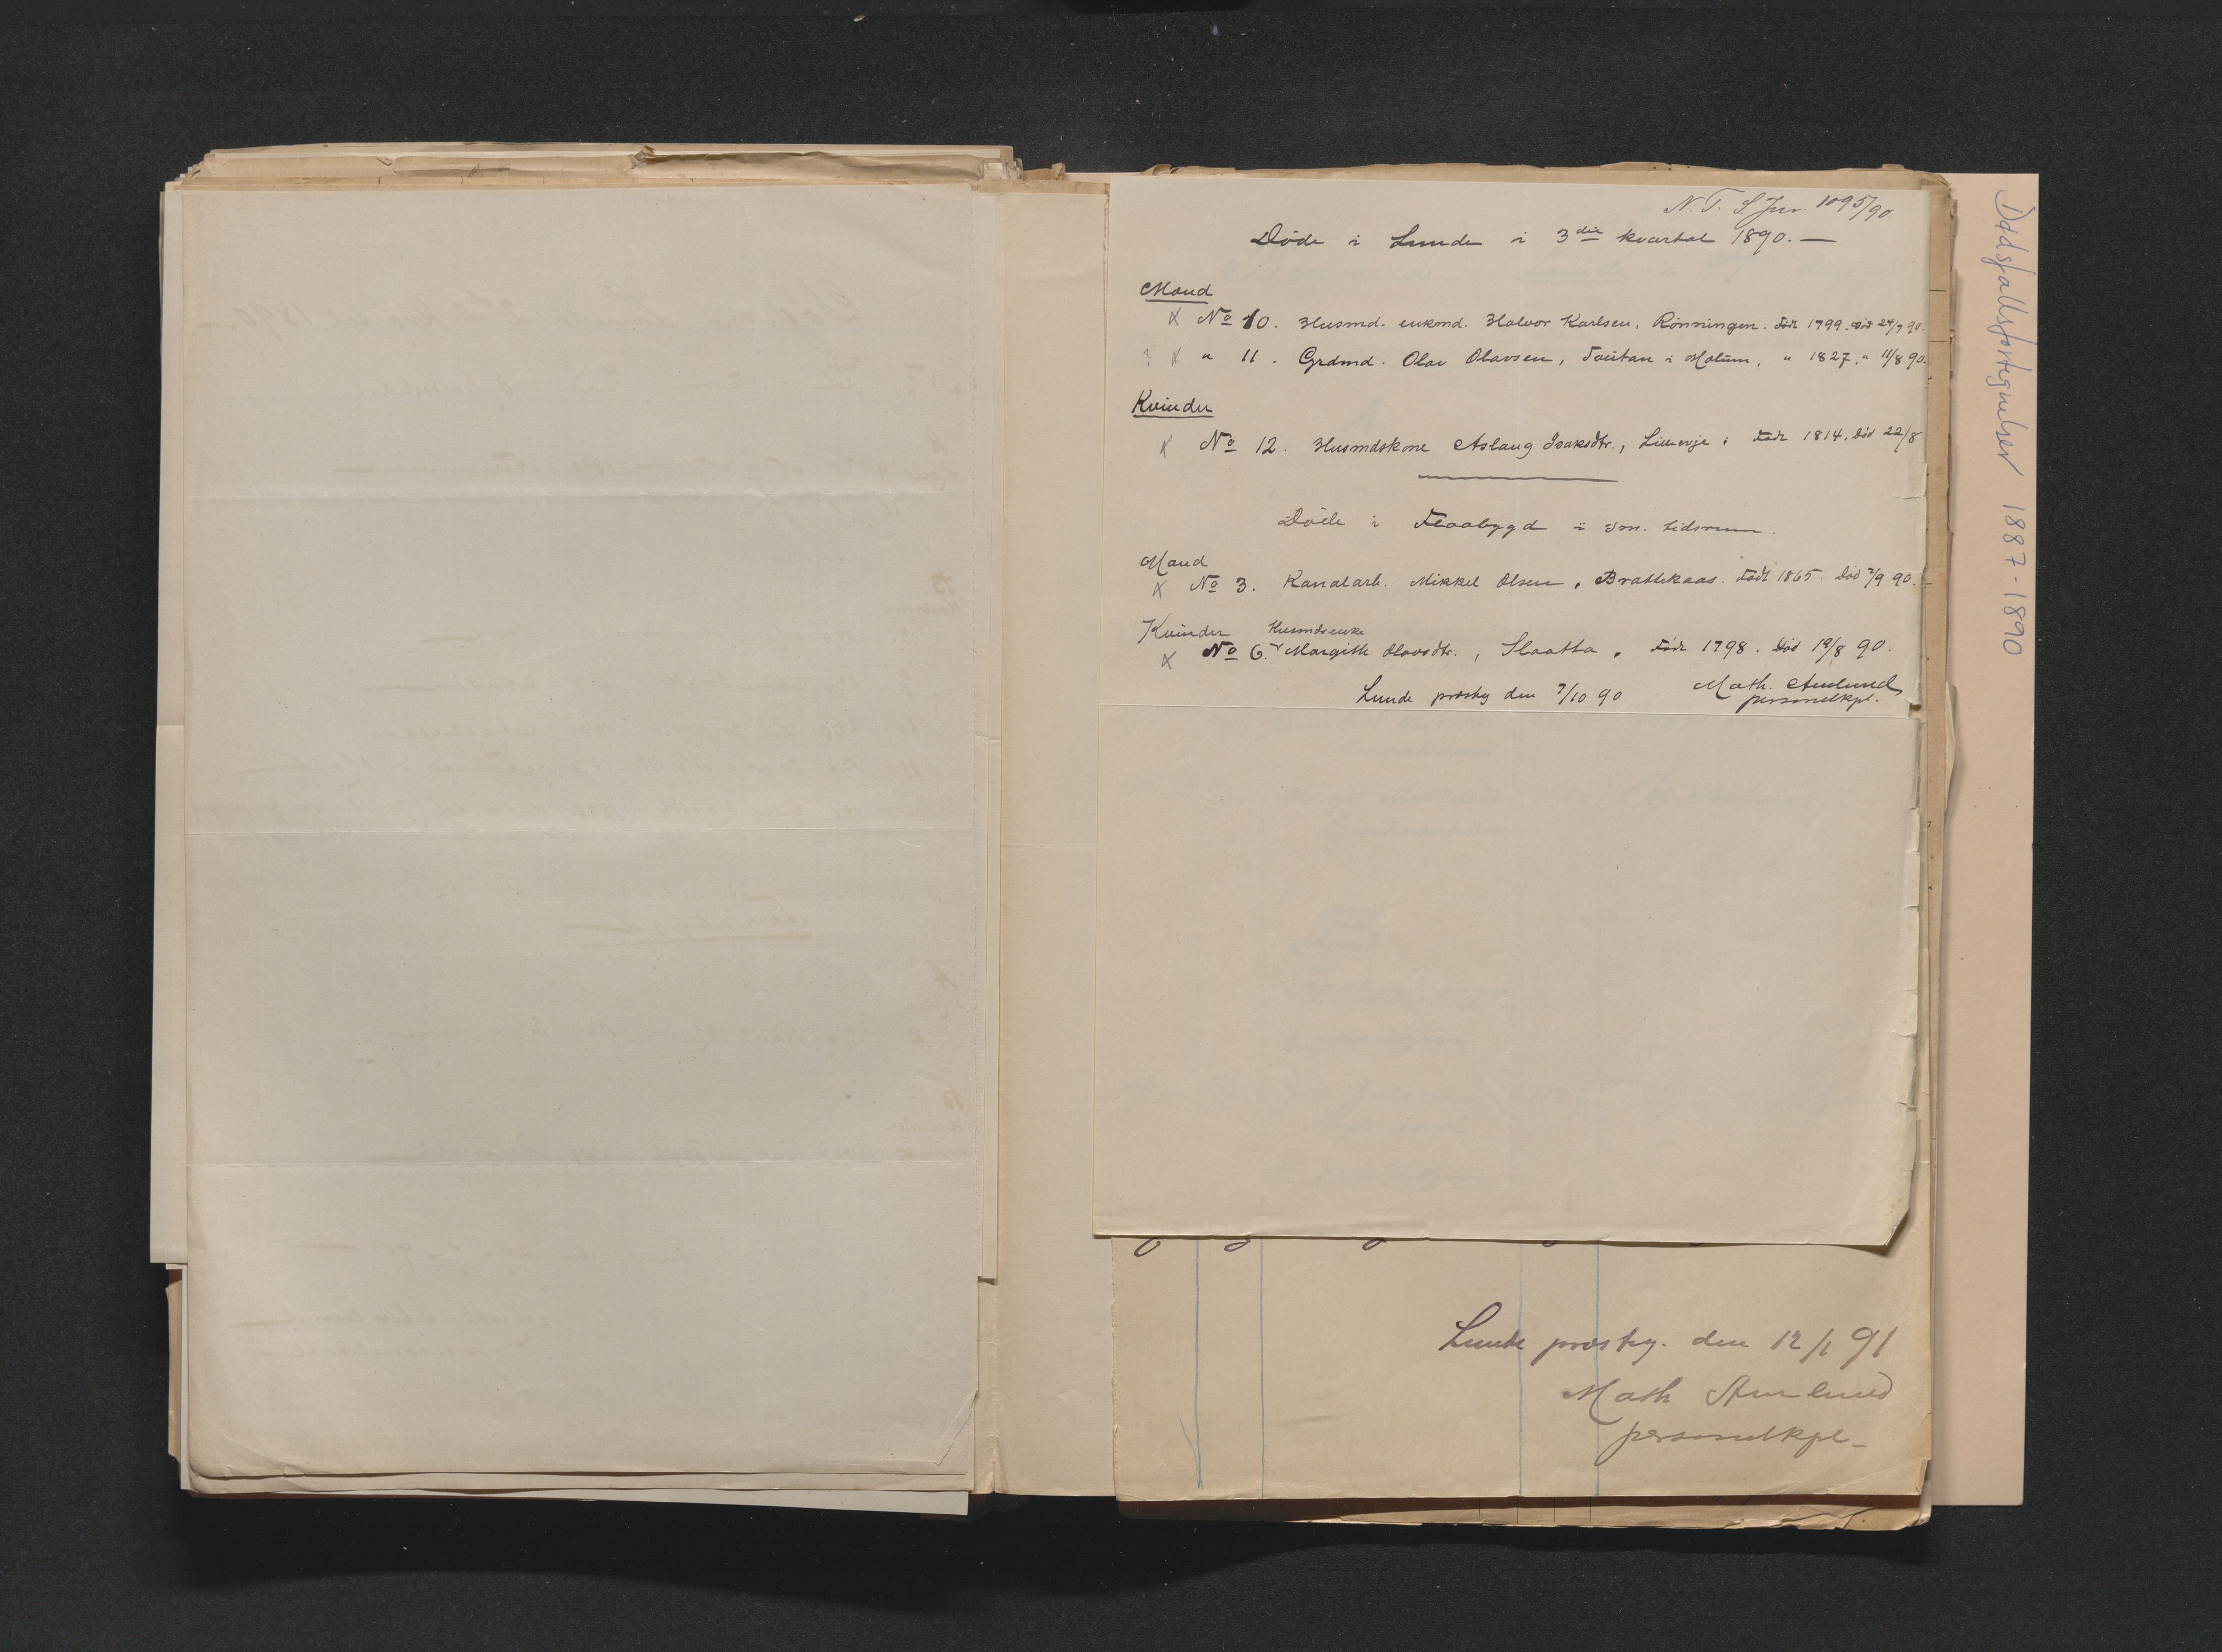 N. T. S. Jur. 1095/90
Døde i Lunde i 3die kvartal 1890. —
Mænd
No 10. Husmd. enkmd. Halvor Karlsen, Rønningen. Født 1799. død 24/7 90.
" 11. Grdmd. Olav Olavsen, i Holum, " 1827, " 11/8 90.
Kvinder
No 12. Husmdskone Aslaug Isaksdtr., Lillevje. Født 1814. Død 22/8
Døde i Flaabygd i sm. tidsrum.
Mænd
No 3. Kanalarb. Mikkel Olsen, Brattekaas. Født 1865. Død 2/9 90.
Kvinder Husmdsenke
No 6. Margith Olavsdtr., Slaatta. Født 1798. Død 19/8 90.
Lunde præstg den 7/10 90 Math. Amlund
personelkpl.
Lunde præstg. den 12/1 91
Math Amlund
personelkpl.
Dødsfallsfortegnelser 1887-1890